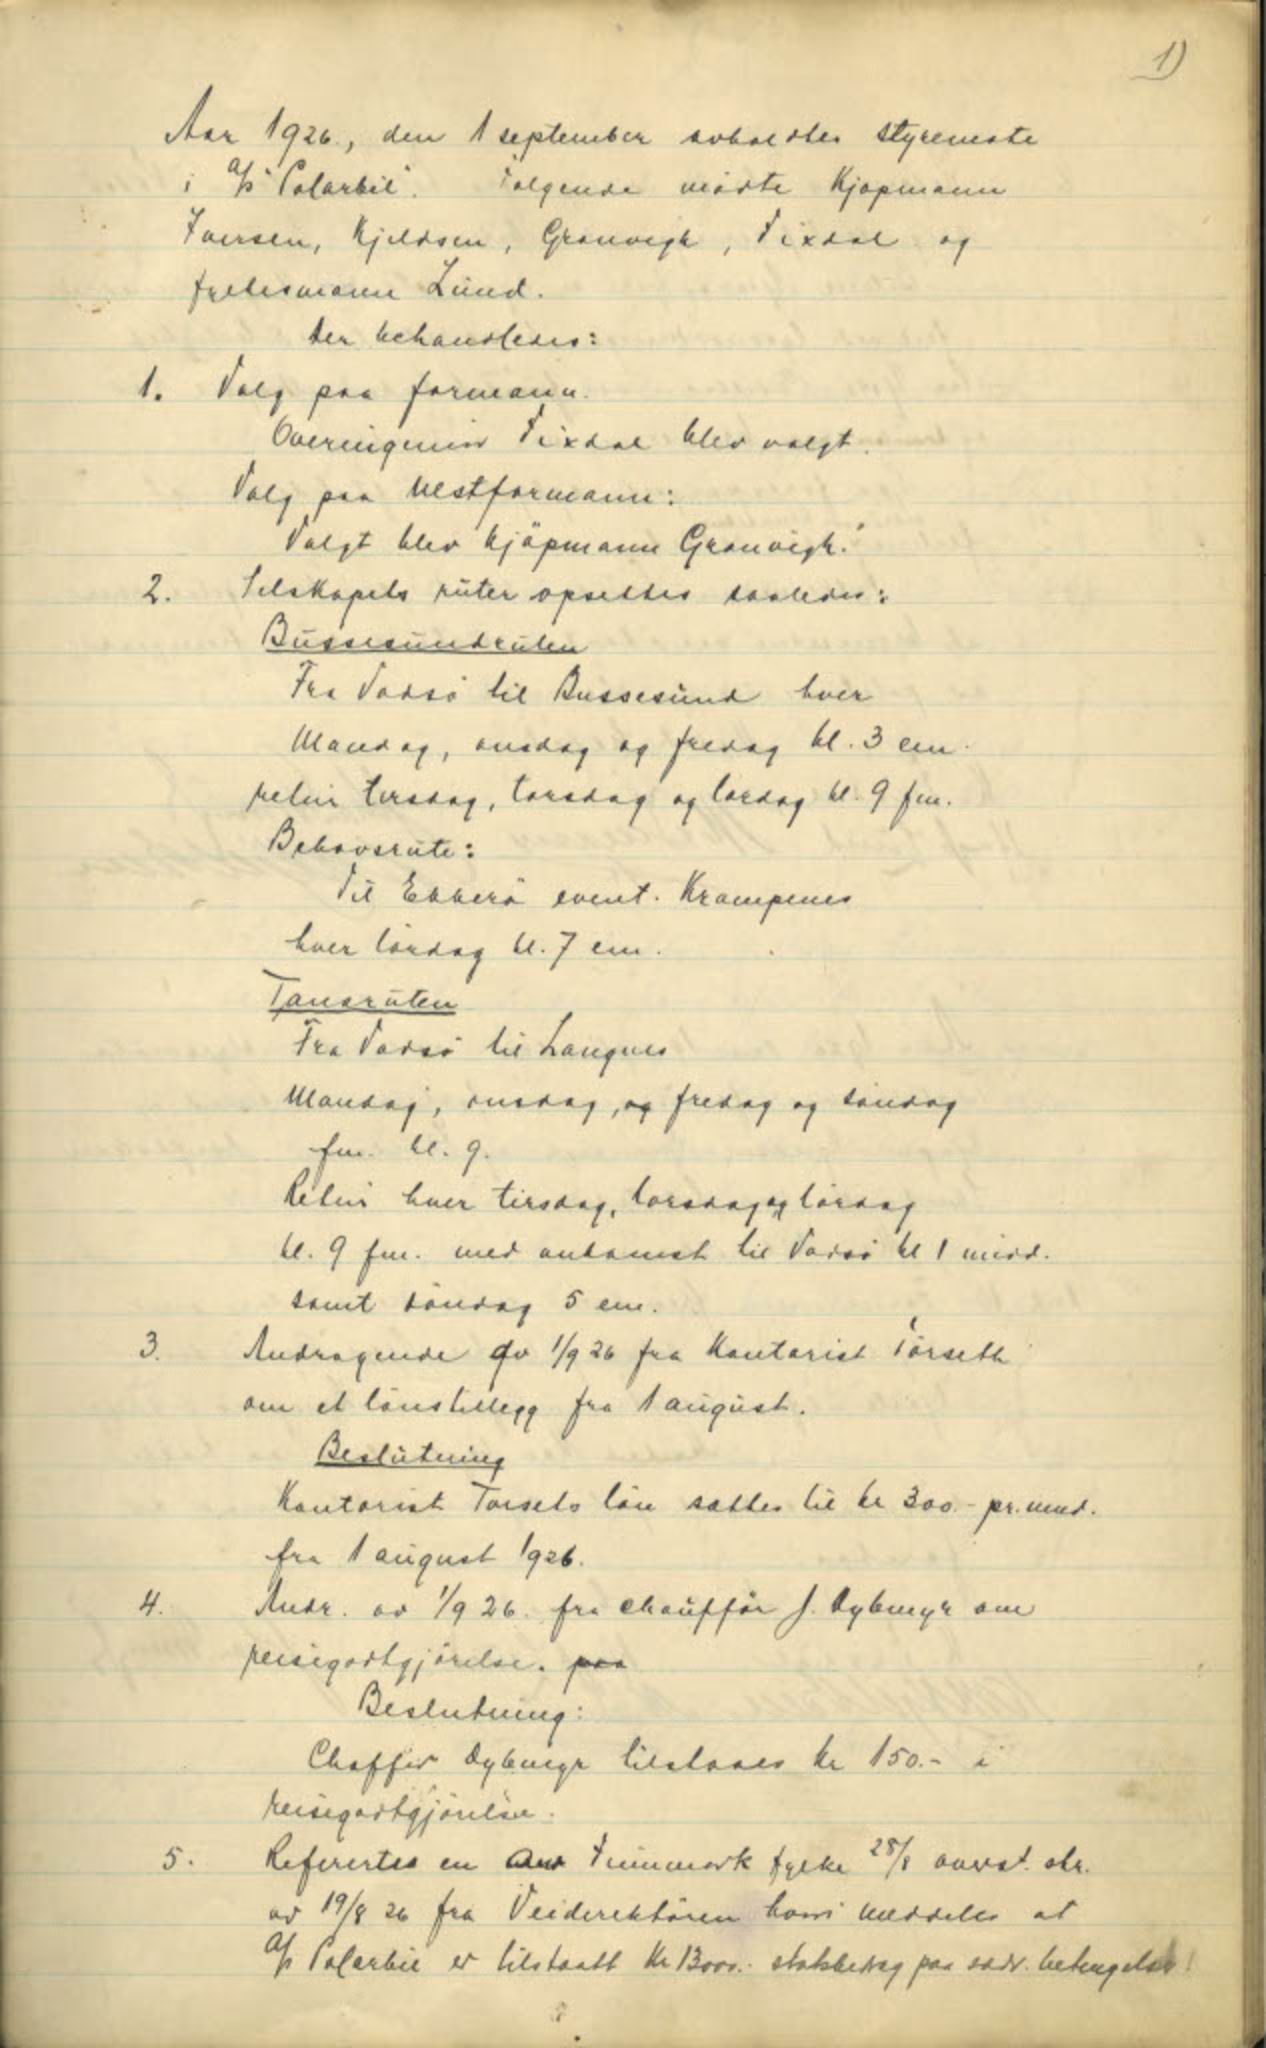 1)
Aar 1926., den 1 september avholdtes styremøte
i A/S "Polarbil". Følgende mødte Kjøpmann
Iversen, Kjeldsen, Grønvigh, Fixdal og
fylkesmann Lund.
Der behandledes:
1. Valg paa formann.
Overingeniør Fixdal blev valgt.
Valg paa Nestformann:
Valgt blev kjöpmann Grønvigh.
2. Selskapets ruter opsettes saaledes:
Bussesundruten
Fra Vadsö til Bussesund hver
Mandag, onsdag og fredag kl. 3 em.
retur tirsdag, torsdag og lördag kl. 9 fm.
Behovsrute:
Til Ekkerö event. Krampenes
hver lördag kl. 7 em.
Tanaruten
Fra Vadsö til Langnes
Mandag, onsdag, og fredag og söndag
fm. kl. 9.
Retur hver tirsdag, torsdag og lördag
kl. 9 fm. med ankomst til Vadsö kl 1 midd.
samt söndag 5 em.
3. Andragende av 1/9 26 fra Kontorist Törseth
om et lönstillegg fra 1 august.
Beslutning
Kontorist Torsets lön sættes til kr 300.- pr. mnd.
fra 1 august 1926.
4. Andr. av 1/9 26. fra chaufför J. Dybmyr om
reisegodtgjörelse. paa
Beslutning:
Chaffør Dybmyr tilstaaes kr 150.- i
reisegodtgjörelse.
5. Refertes en Finnmark fylke 28/8 overs. skr.
av 19/8 26 fra Veidirektören hvori meddeles at
A/S Polarbil er tilstaatt Kr 13000.- statsbidrag paa sedv. betingelser!